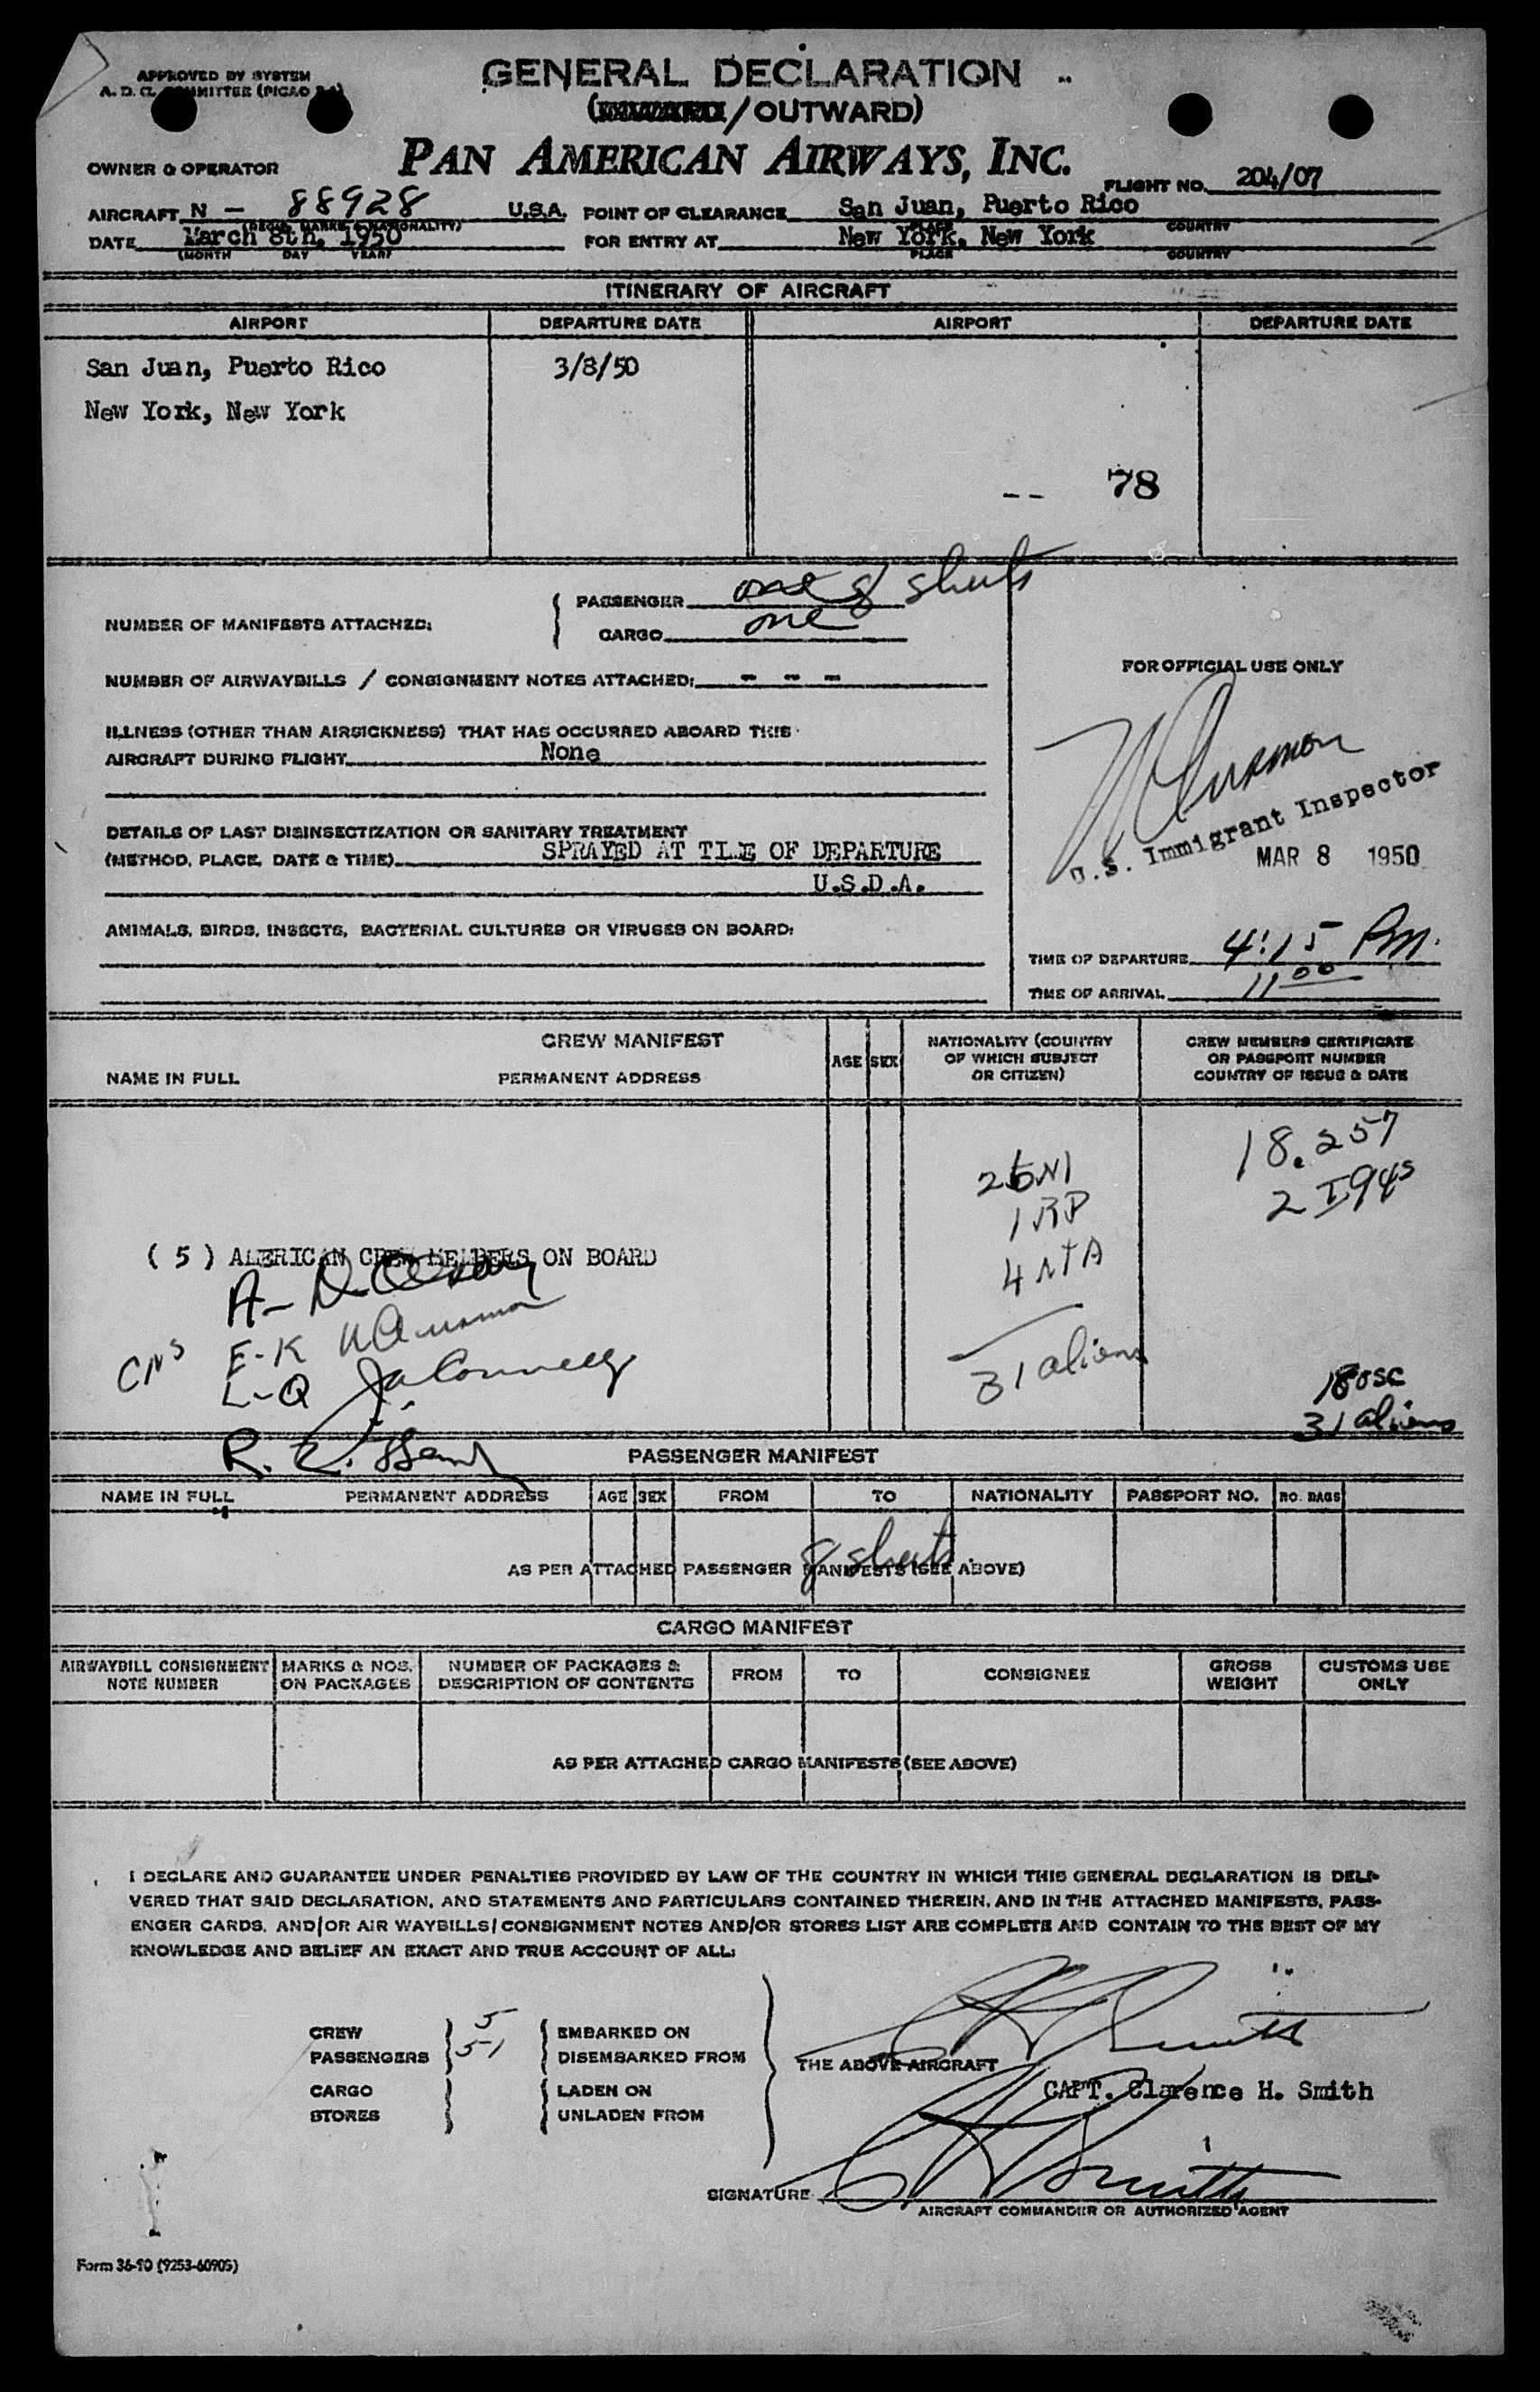 APPROVED BY SYSTEM
A. D. C. COMMITTEE (PICAO
GENERAL DECLARATION
(INWARD/OUTWARD)
OWNER & OPERATOR PAN AMERICAN AIRWAYS, INC.
FLIGHT NO. 204/07
AIRCRAFT N - 88928 U.S.A. POINT OF CLEARANCE San Juan, Puerto Rico
(REGIS. MARKS & NATIONALITY) PLACE COUNTRY
DATE March 8th, 1950 FOR ENTRY AT New York, New York
(MONTH DAY YEAR) PLACE COUNTRY
ITINERARY OF AIRCRAFT
AIRPORT DEPARTURE DATE AIRPORT DEPARTURE DATE
San Juan, Puerto Rico 3/8/50
New York, New York
-- 78
PASSENGER one 8 sheets
NUMBER OF MANIFESTS ATTACHED:
CARGO one
FOR OFFICIAL USE ONLY
NUMBER OF AIRWAYBILLS / CONSIGNMENT NOTES ATTACHED: - - -
ILLNESS (OTHER THAN AIRSICKNESS) THAT HAS OCCURRED ABOARD THIS
AIRCRAFT DURING FLIGHT None
U.S. Immigrant Inspector
MAR 8 1950
DETAILS OF LAST DISINSECTIZATION OR SANITARY TREATMENT
(METHOD, PLACE, DATE & TIME) SPRAYED AT TIME OF DEPARTURE
U.S.D.A.
ANIMALS, BIRDS, INSECTS, BACTERIAL CULTURES OR VIRUSES ON BOARD:
TIME OF DEPARTURE 4:15 Pm.
TIME OF ARRIVAL 11 00
CREW MANIFEST
NAME IN FULL PERMANENT ADDRESS AGE SEX NATIONALITY (COUNTRY OF WHICH SUBJECT OR CITIZEN) CREW MEMBERS CERTIFICATE OR PASSPORT NUMBER COUNTRY OF ISSUE & DATE
18.257
2 I94s
1 RP
4 NTA
( 5 ) AMERICAN CREW MEMBERS ON BOARD
A-D
E-K
L-Q J.A. Connelly
31 aliens
18 USC
31 aliens
PASSENGER MANIFEST
NAME IN FULL PERMANENT ADDRESS AGE SEX FROM TO NATIONALITY PASSPORT NO. NO. BAGS
8 sheets
AS PER ATTACHED PASSENGER MANIFESTS (SEE ABOVE)
CARGO MANIFEST
AIRWAYBILL CONSIGNMENT NOTE NUMBER MARKS & NOS. ON PACKAGES NUMBER OF PACKAGES & DESCRIPTION OF CONTENTS FROM TO CONSIGNEE GROSS WEIGHT CUSTOMS USE ONLY
AS PER ATTACHED CARGO MANIFESTS (SEE ABOVE)
I DECLARE AND GUARANTEE UNDER PENALTIES PROVIDED BY LAW OF THE COUNTRY IN WHICH THIS GENERAL DECLARATION IS DELI-
VERED THAT SAID DECLARATION, AND STATEMENTS AND PARTICULARS CONTAINED THEREIN, AND IN THE ATTACHED MANIFESTS, PASS-
ENGER CARDS, AND/OR AIR WAYBILLS/CONSIGNMENT NOTES AND/OR STORES LIST ARE COMPLETE AND CONTAIN TO THE BEST OF MY
KNOWLEDGE AND BELIEF AN EXACT AND TRUE ACCOUNT OF ALL:
CREW 5 EMBARKED ON
PASSENGERS 51 DISEMBARKED FROM
THE ABOVE AIRCRAFT
CARGO LADEN ON
CAPT. Clarence H. Smith
STORES UNLADEN FROM
SIGNATURE C H Smith
AIRCRAFT COMMANDER OR AUTHORIZED AGENT
Form 36-90 (9253-60905)